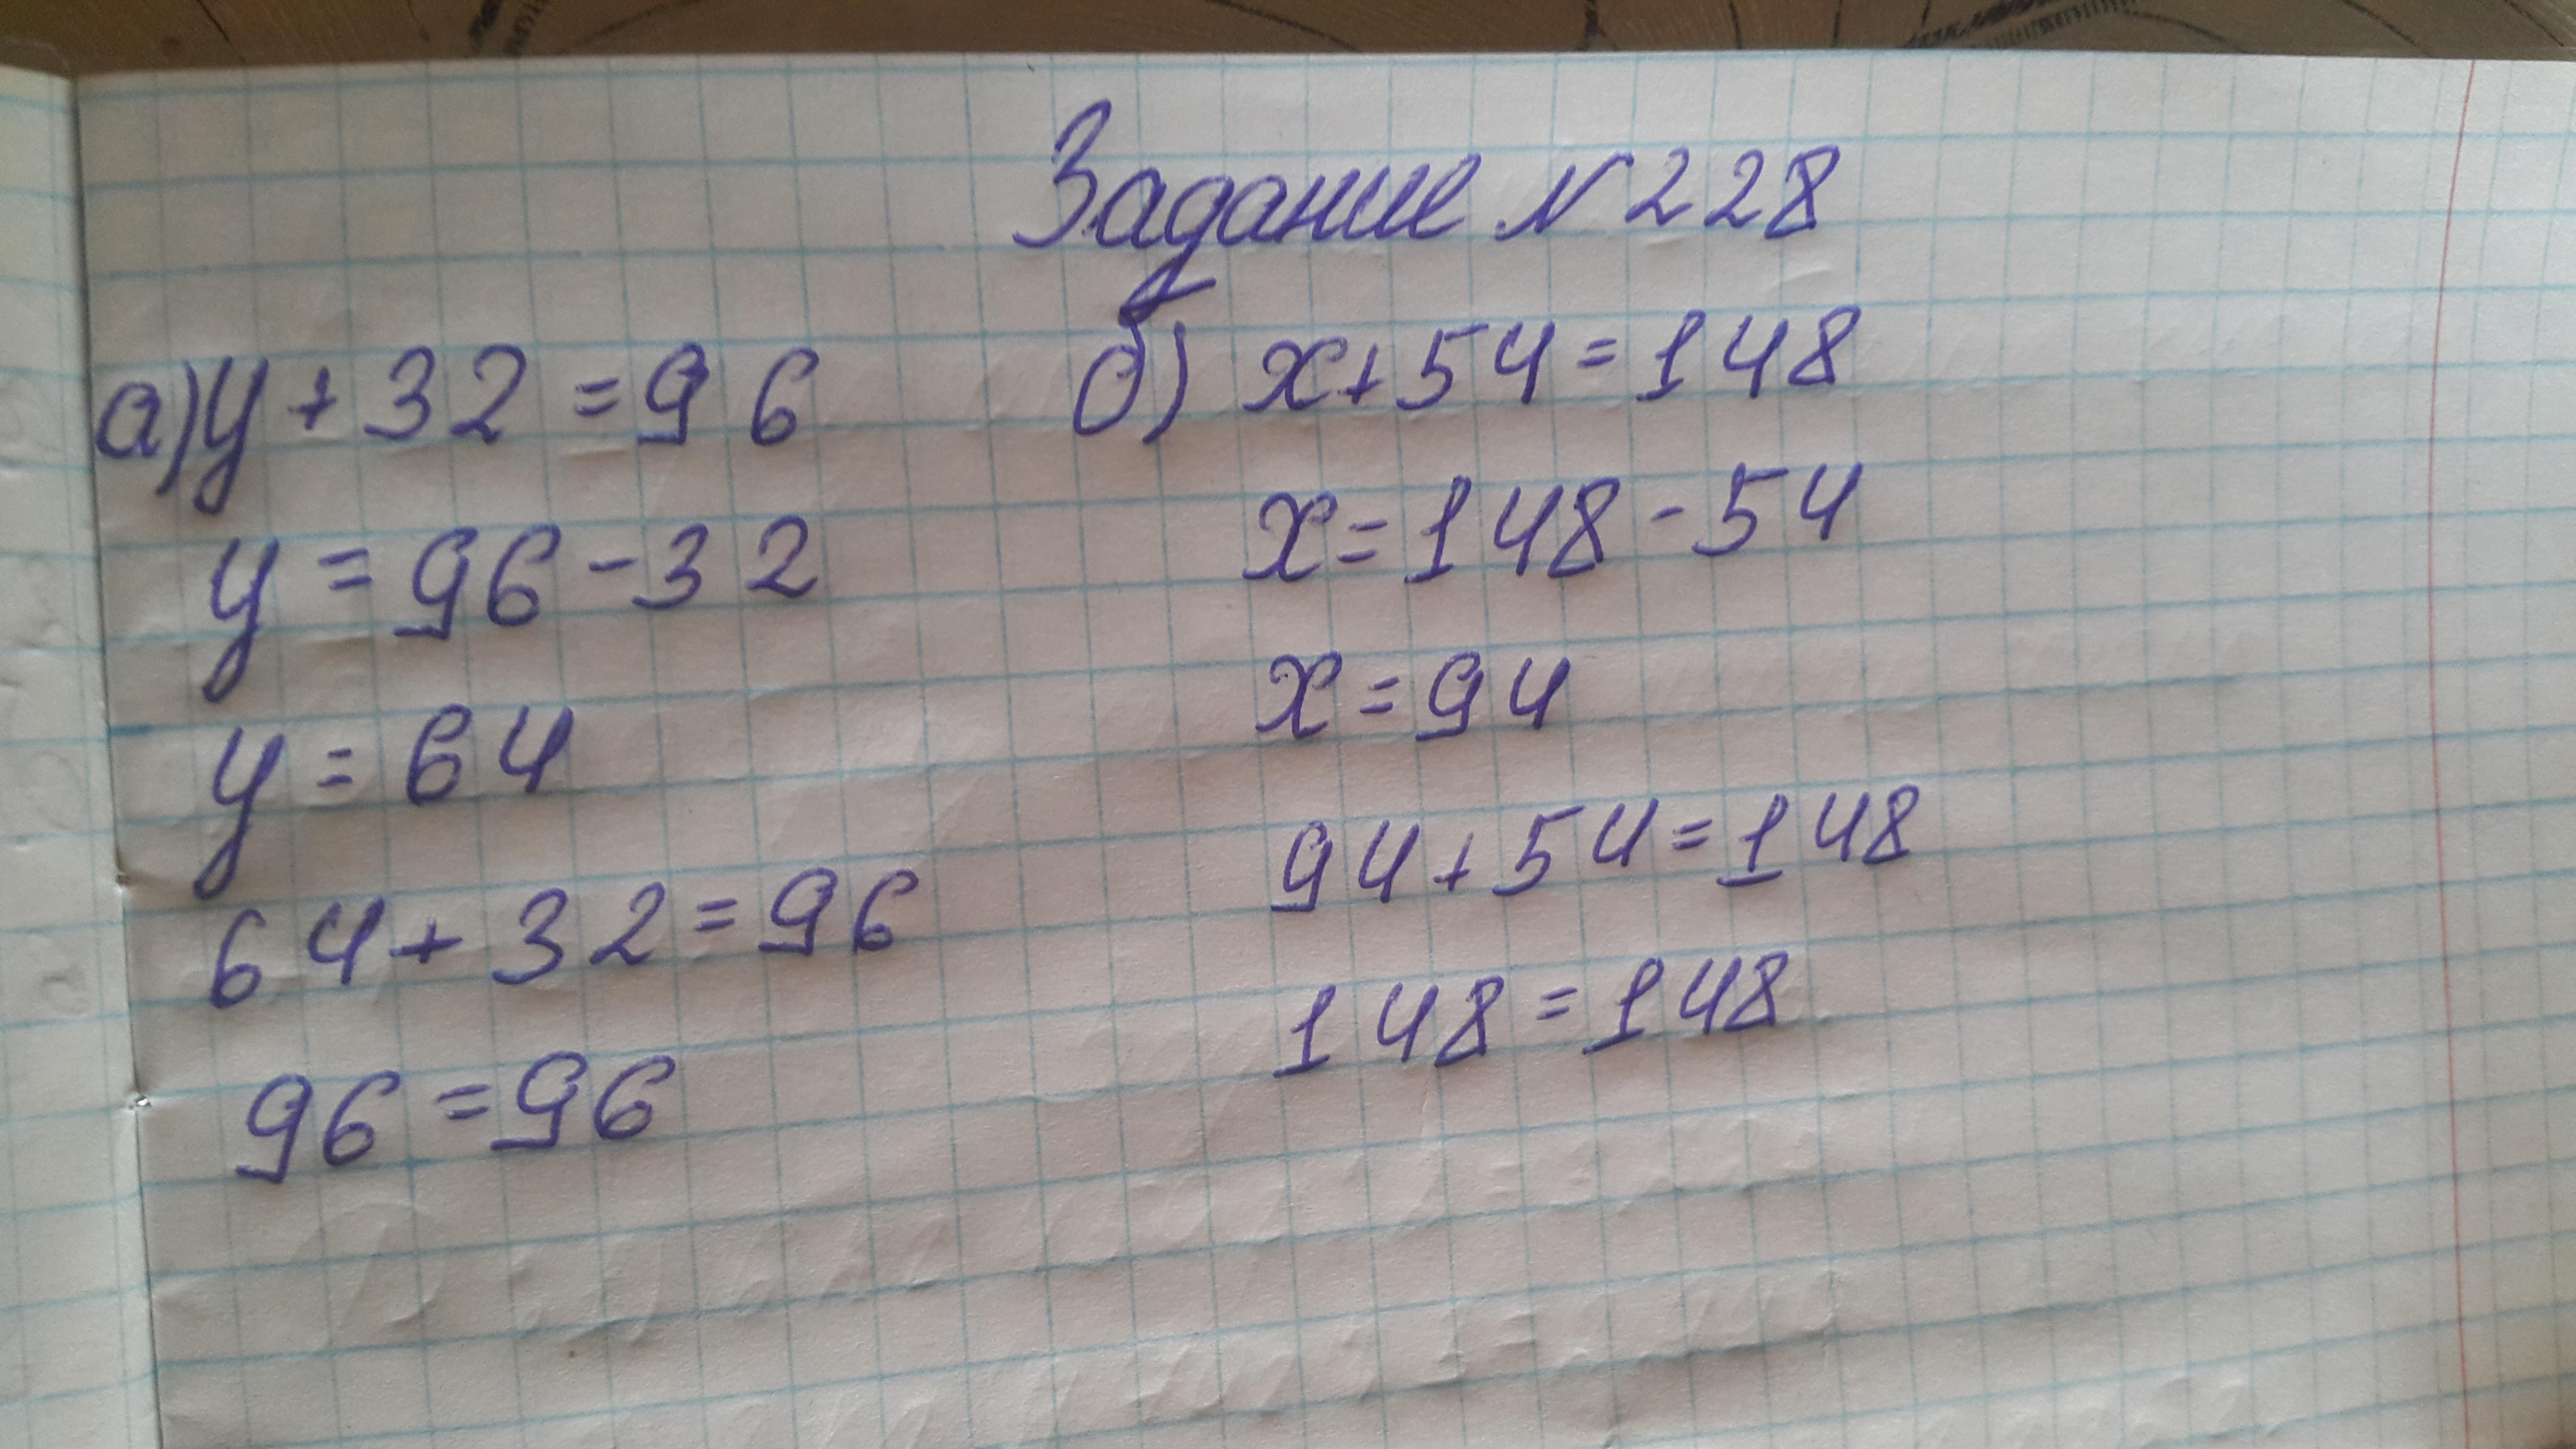 Задание №228
а) у + 32 = 96
у = 96 - 32
у = 64
64 + 32 = 96
96 = 96
б) х + 54 = 148
х = 148 - 54
х = 94
94 + 54 = 148
148 = 148